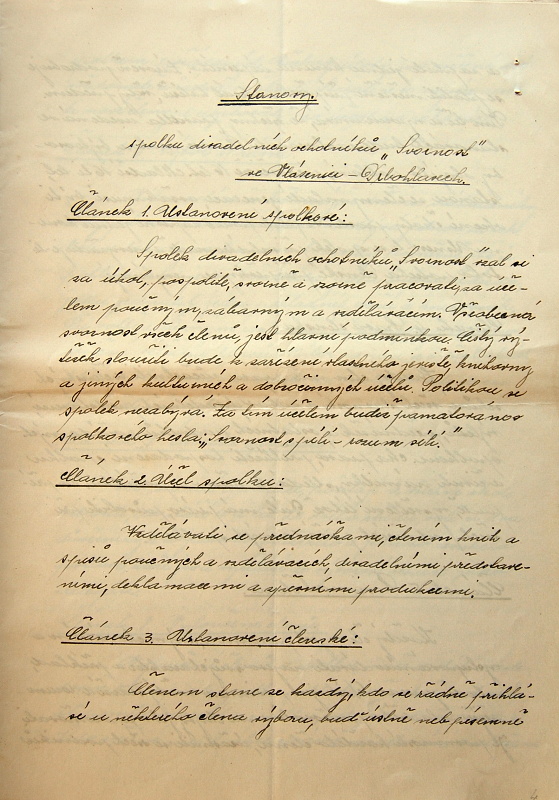 Stanovy.
spolku divadelních ochotníků „Svornost"
ve Vlásenici – Drbohlavech.
Článek 1. Ustanovení spolkové:
Spolek divadelních ochotníků „Svornost" vzal si
za úkol, pospolitě, svorně a vzorně pracovati, za úče-
lem poučným, zábavným a vzdělávacím. Všeobecná
svornost všech členů, jest hlavní podmínkou. Čistý vý-
těžek sloužiti bude k zařízení vlastního jeviště, knihovny
a jiných kulturních a dobročinných účelů. Politikou se
spolek nezabývá. Za tím účelem budiž pamatováno
spolkového hesla: „Svornost sílí – rozum sílí."
Článek 2. Účel spolku:
Vzdělávati se přednáškami, čtením knih a
spisů poučných a vzdělávacích, divadelními představe-
ními, deklamacemi a zpěvními produkcemi.
Článek 3. Ustanovení členské:
Členem stane se každý, kdo se řádně přihlá-
sí u některého člena výboru, buď ústně neb písemně